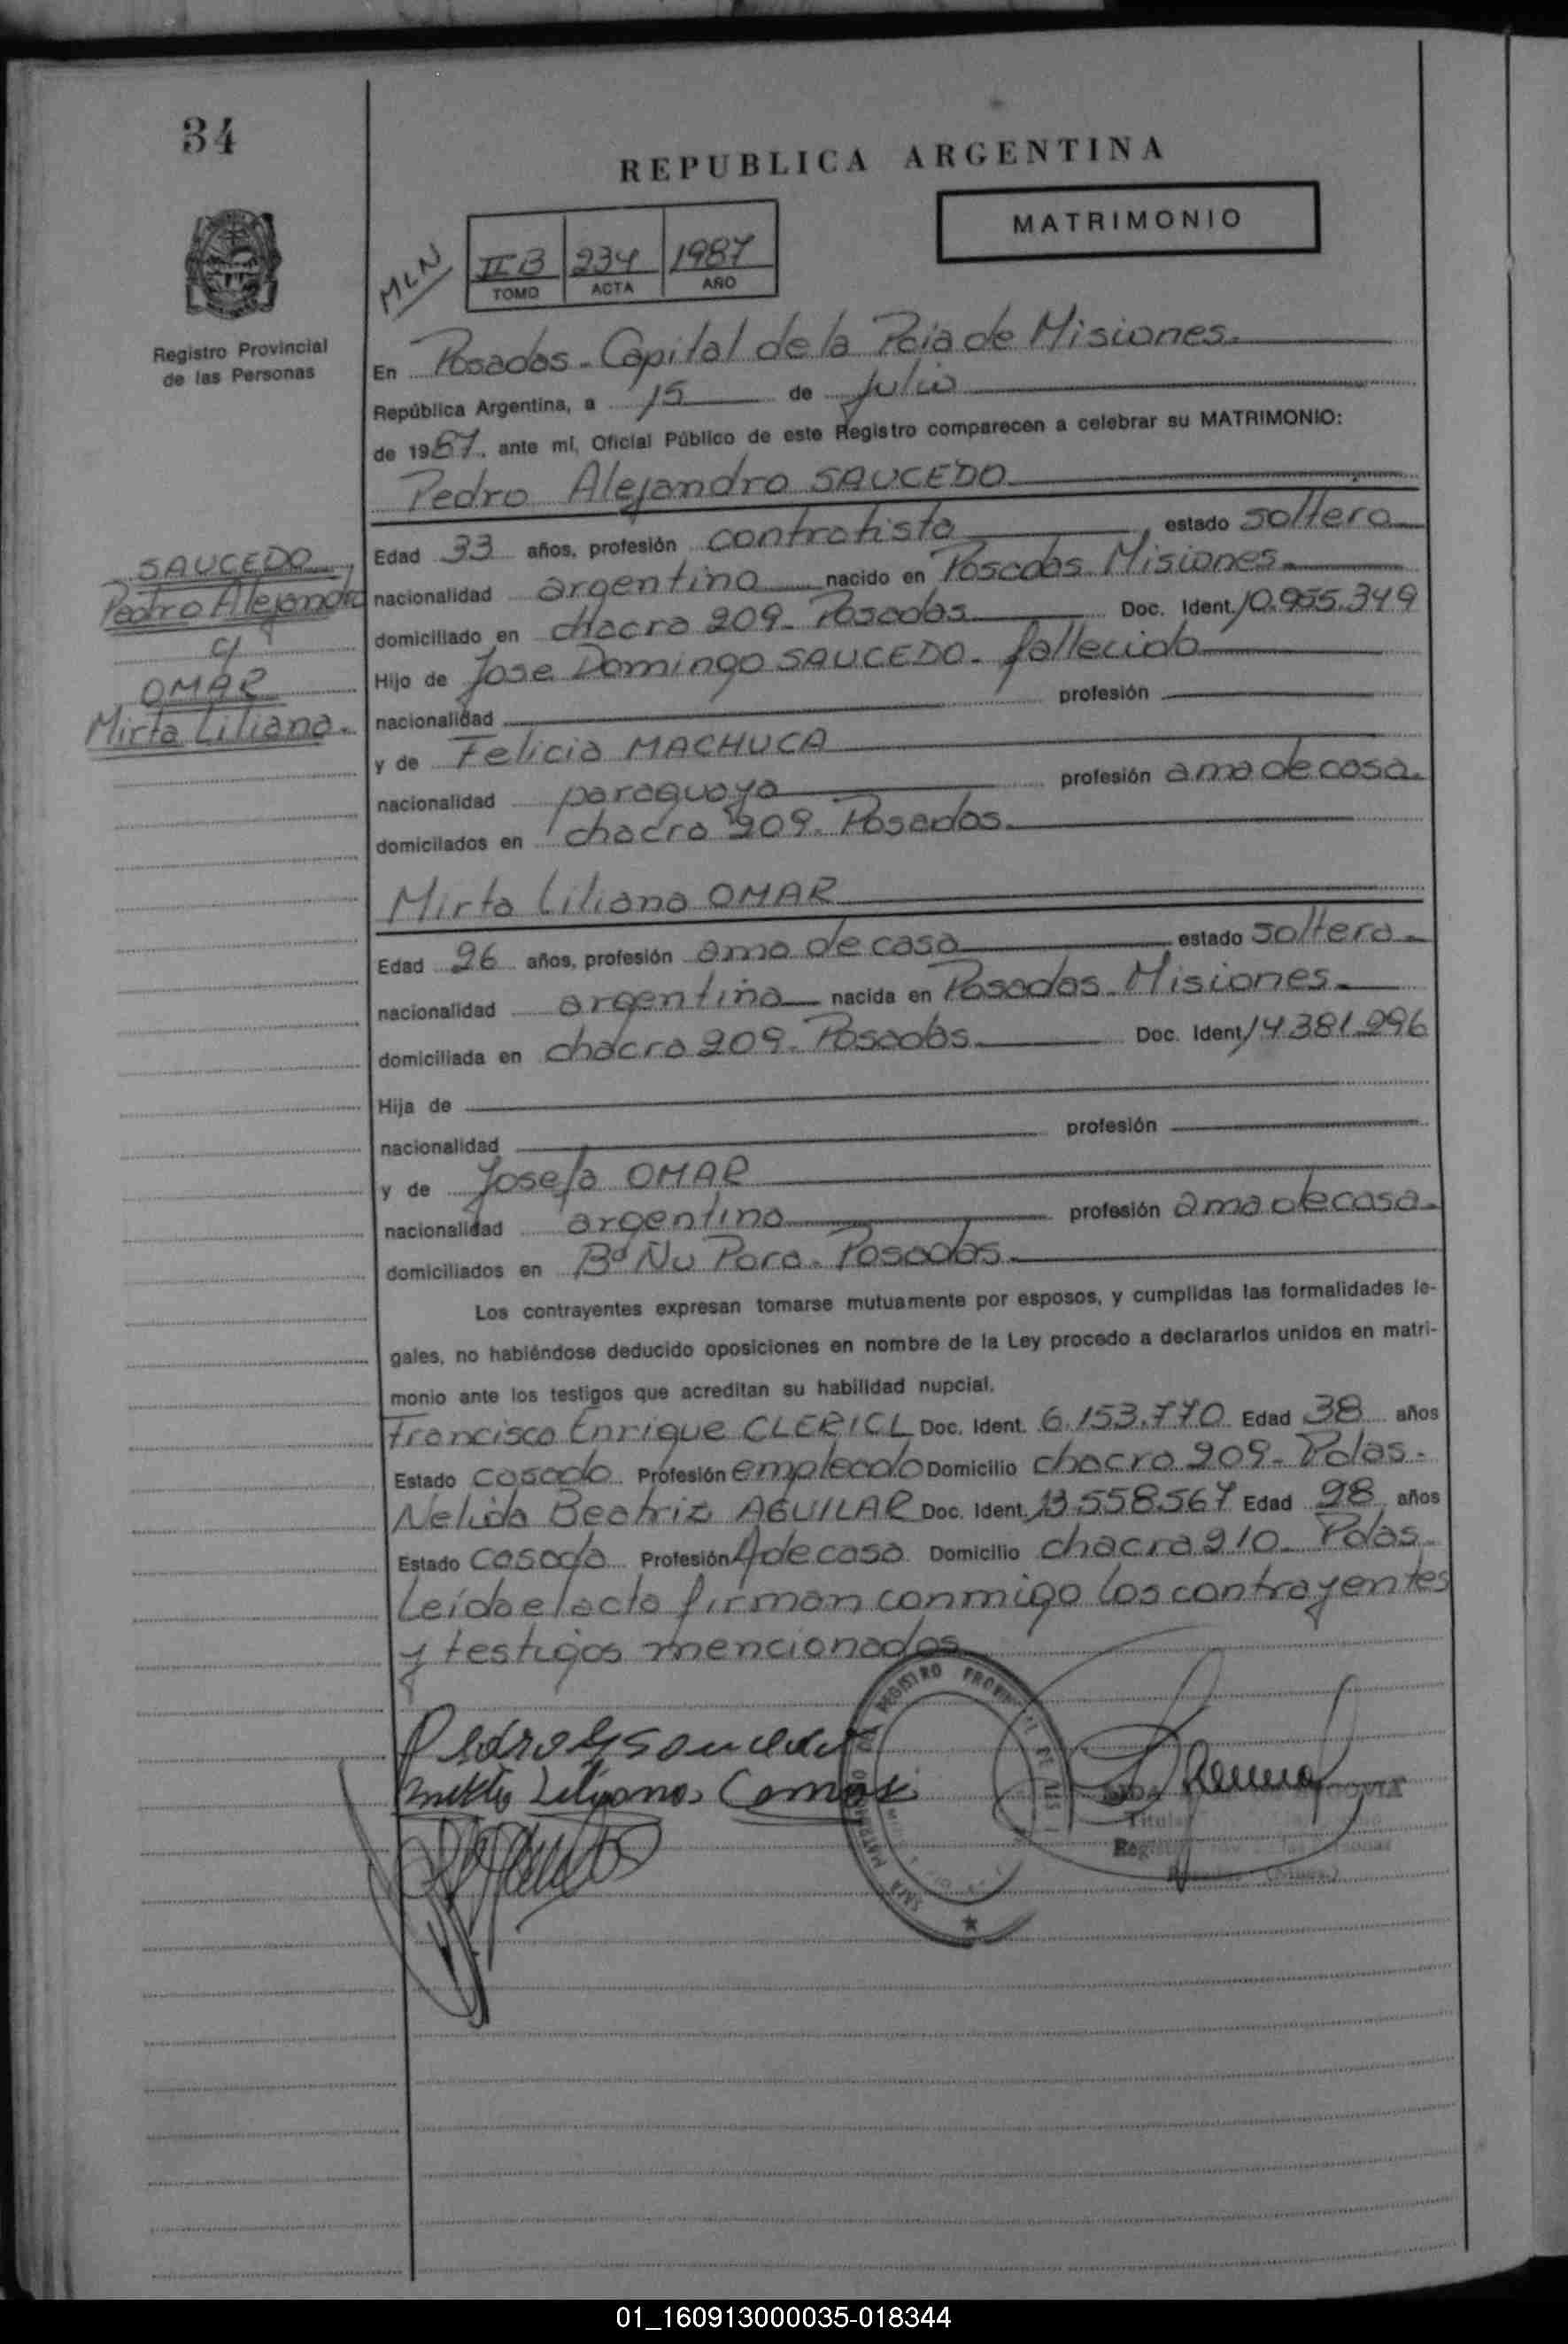 34
REPUBLICA ARGENTINA
MATRIMONIO
MLN
II B 234 1987
TOMO ACTA AÑO
Registro Provincial
de las Personas
En Posadas - Capital de la Pcia de Misiones.
República Argentina, a 15 de Julio
de 1987. ante mí, Oficial Público de este Registro comparecen a celebrar su MATRIMONIO:
Pedro Alejandro SAUCEDO
SAUCEDO
Pedro Alejandro
c/
OMAR
Mirta Liliana.
Edad 33 años, profesión contratista estado soltero
nacionalidad argentino nacido en Posadas Misiones
domiciliado en chacra 209 - Posadas Doc. Ident. 10.955.349
Hijo de Jose Domingo SAUCEDO - fallecido
nacionalidad profesión
y de Felicia MACHUCA
nacionalidad paraguaya profesión ama de casa.
domicilados en chacra 209 - Posadas.
Mirta Liliana OMAR
Edad 26 años, profesión ama de casa estado soltera
nacionalidad argentina nacida en Posadas - Misiones
domiciliada en chacra 209 - Posadas Doc. Ident. 14.381.296
Hija de
nacionalidad profesión
y de Josefa OMAR
nacionalidad argentina profesión ama de casa.
domiciliados en Bº Ñu Pora - Posadas
Los contrayentes expresan tomarse mutuamente por esposos, y cumplidas las formalidades le-
gales, no habiéndose deducido oposiciones en nombre de la Ley procedo a declararlos unidos en matri-
monio ante los testigos que acreditan su habilidad nupcial.
Francisco Enrique CLERICI Doc. Ident. 6.153.770 Edad 38 años
Estado casado Profesión empleado Domicilio chacra 209 - Pdas.
Nelida Beatriz AGUILAR Doc. Ident. 13.558.567 Edad 28 años
Estado casada Profesión A de casa Domicilio chacra 210 - Pdas
Leída el acta firman conmigo los contrayentes
y testigos mencionados
REGISTRO
Titular
01_160913000035-018344